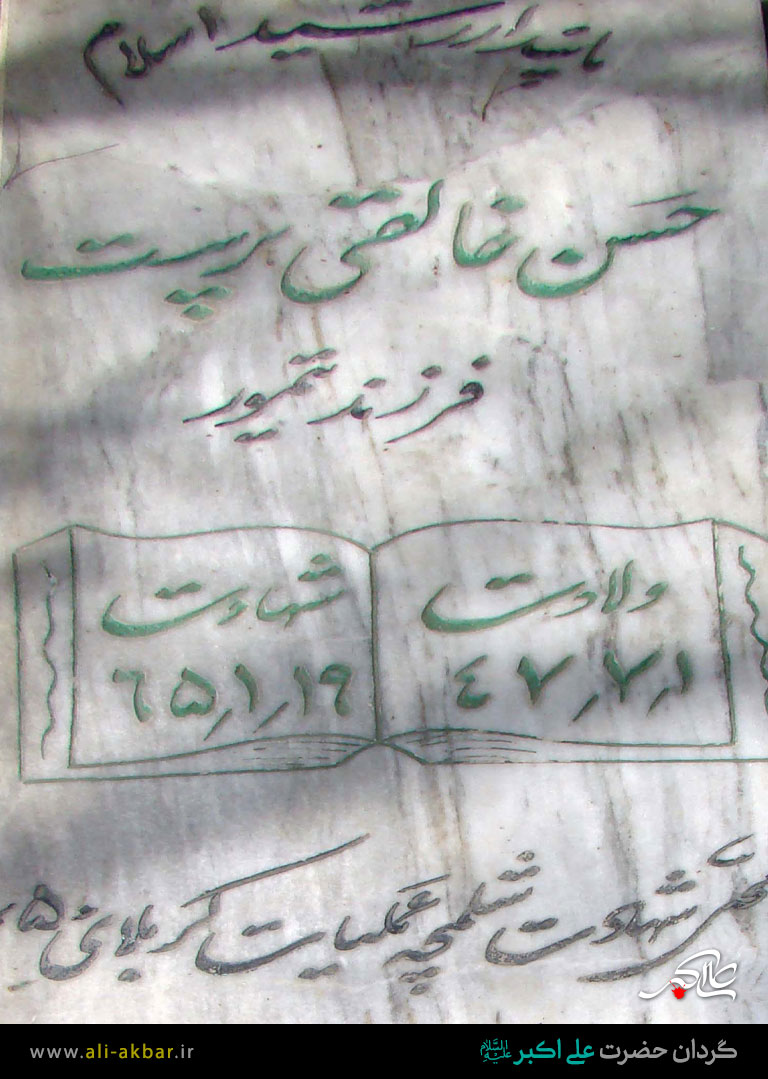 پاسدار رشید اسلام
حسن خالقی پرست
فرزند تیمور
ولادت
۴۷٫۷٫۱
شهادت
۶۵٫۱٫۱۹
محل شهادت شلمچه عملیات کربلای ۵
علی اکبر
گردان حضرت علی اکبر علیه السلام
www.ali-akbar.ir